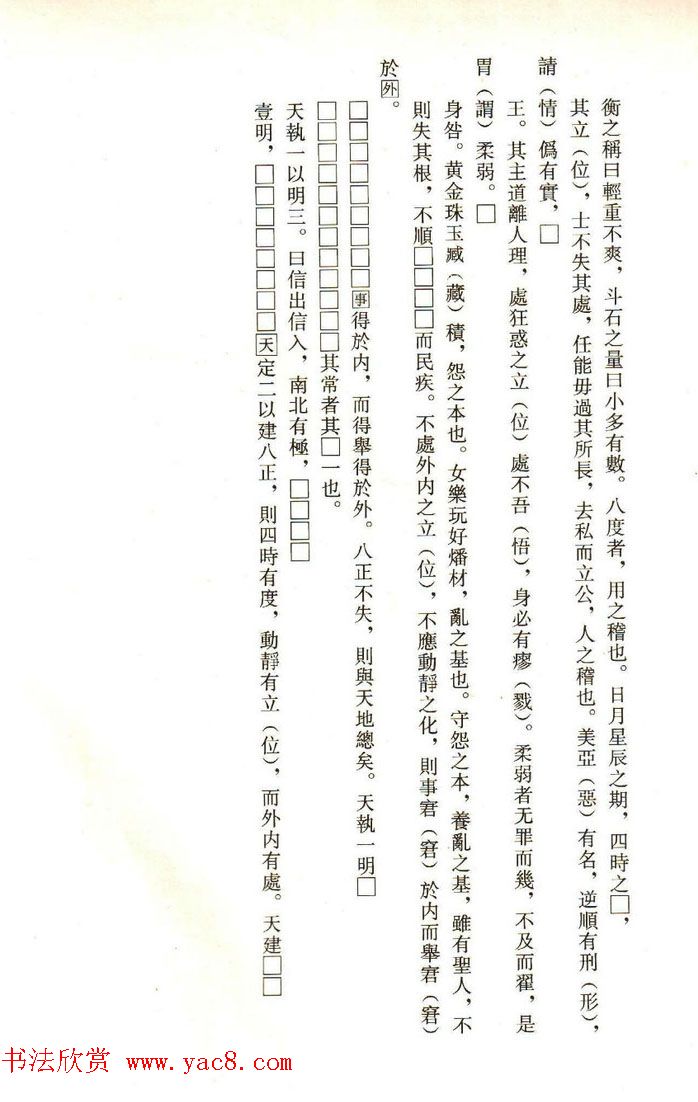 衡之稱曰輕重不爽，斗石之量曰小多有數。八度者，用之稽也。日月星辰之期，四時之□，
其立（位），士不失其處，任能毋過其所長，去私而立公，人之稽也。美亞（惡）有名，逆順有刑（形），
請（情）僞有實，□
王。其主道離人理，處狂惑之立（位）處不吾（悟），身必有瘳（戮）。柔弱者无罪而幾，不及而翟，是
胃（謂）柔弱。□
身咎。黄金珠玉臧（藏）積，怨之本也。女樂玩好燔材，亂之基也。守怨之本，養亂之基，雖有聖人，不
則失其根，不順□□□□而民疾。不處外内之立（位），不應動靜之化，則事窘（窘）於内而舉窘（窘）
於外。
□□□□□□□□事得於内，而得舉得於外。八正不失，則與天地總矣。天執一明□
□□□□□□□□□□□其常者其□一也。
天執一以明三。日信出信入，南北有極，□□□□
壹明，□□□□□□□□天定二以建八正，則四時有度，動靜有立（位），而外内有處。天建□□
书法欣赏 www.yac8.com